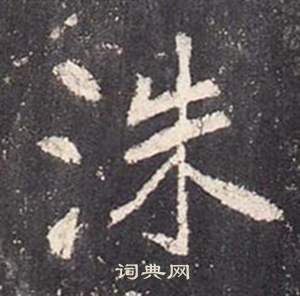 洙
词典网